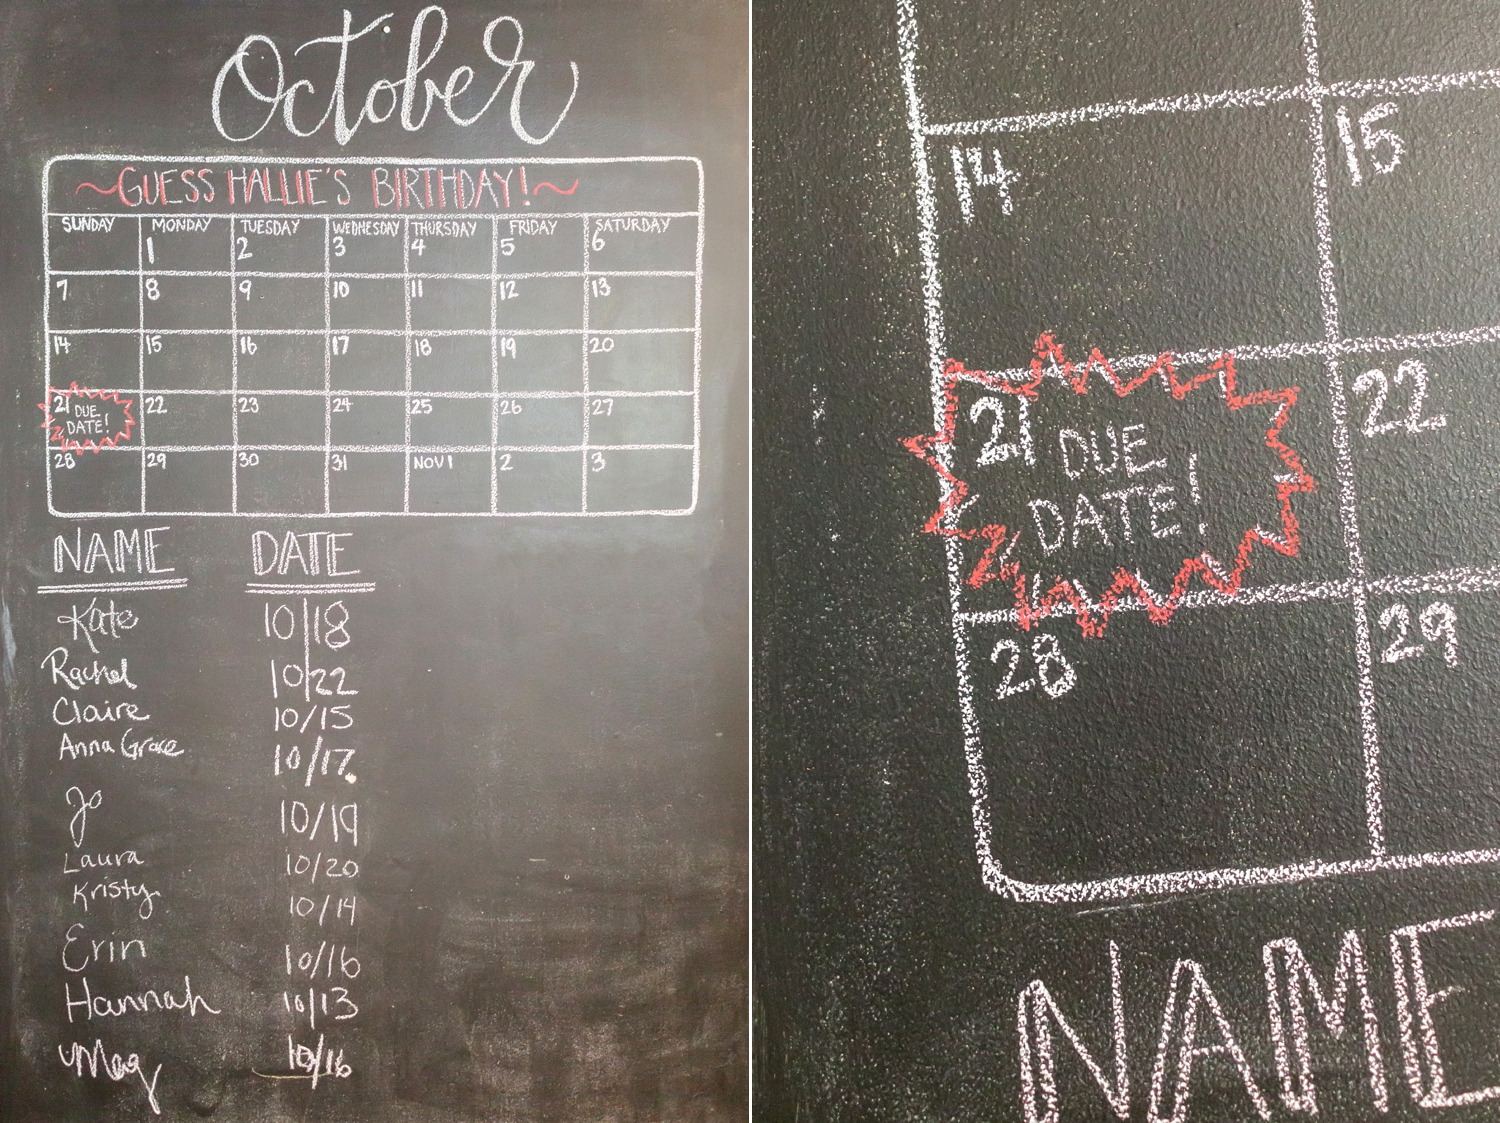 October
~GUESS HALLIE'S BIRTHDAY!~
SUNDAY MONDAY TUESDAY WEDNESDAY THURSDAY FRIDAY SATURDAY
1 2 3 4 5 6
7 8 9 10 11 12 13
14 15 16 17 18 19 20
21 DUE DATE! 22 23 24 25 26 27
28 29 30 31 NOV 1 2 3
NAME DATE
Kate 10/18
Rachel 10/22
Claire 10/15
Anna Grace 10/17
Jo 10/19
Laura 10/20
Kristy 10/14
Erin 10/16
Hannah 10/13
Mag 10/16
14 15
21 DUE 22
DATE!
28 29
NAME